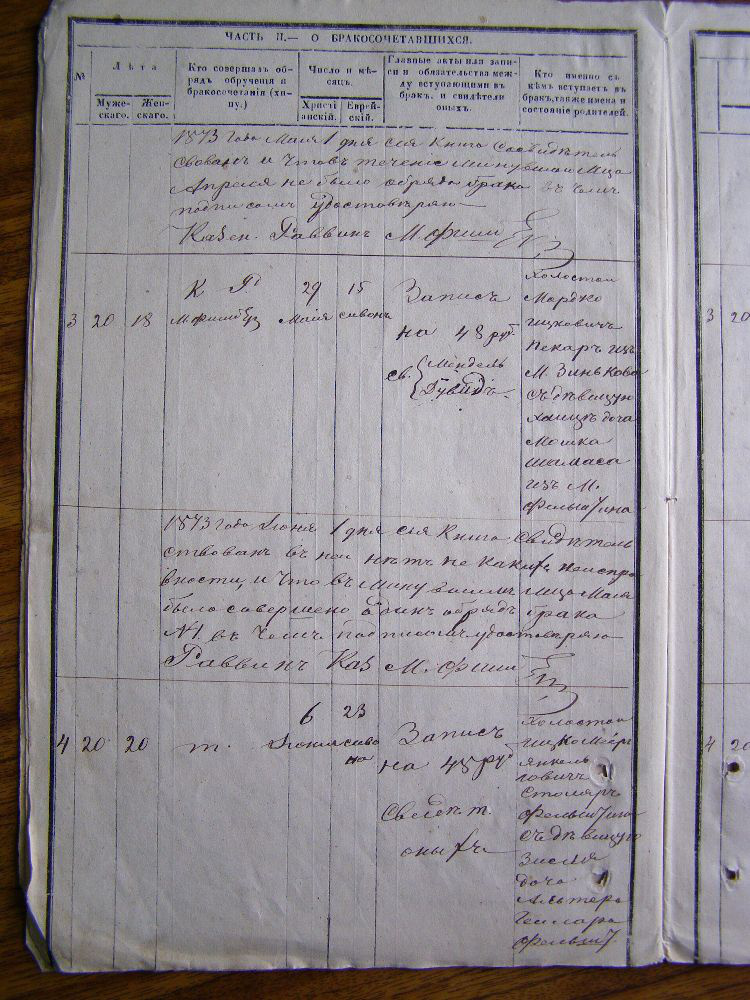 ЧАСТЬ II.— О БРАКОСОЧЕТАВШИХСЯ.
№
Лѣта
Муже-
скаго.
Жен-
скаго.
Кто совершалъ об-
рядъ обрученія и
бракосочетанія (хи-
пу.)
Число и мѣ-
сяцъ.
Христі-
анскій.
Еврей-
скій.
Главные акты или запи-
си и обязательства меж-
ду вступающими въ
бракъ, и свидѣтели
оныхъ.
Кто именно съ
кѣмъ вступаетъ въ
бракъ, также имена и
состояніе родителей.
1873 года Мая 1 дня сія Книга Свидѣтель
ствованъ и что въ теченіе минувшаго м-ца
Апреля не было обряда брака въ чемъ
подписомъ удостовѣряю
Казен. Раввинъ М. Фиш
3
20
18
К Р
29
Мая
15
сивонъ
Записъ
на 48 руб
св. Мендель
Дувидъ
холостой
Мордко
Ицковичъ
Пекаръ изъ
М. Зинькова
съ дѣвицую
доча
Мошка
шамаса
изъ М.
Фельштина
1873 года Іюня 1 дня сія Книга Свидѣтель
ствованъ въ ней нѣтъ не какихъ неиспра
вности, и что въ минувшемъ м-ца Мая
было совершено одинъ обрядъ брака
№1. въ чемъ подписомъ удостовѣряю
Раввинъ Каз М. Фиш
4
20
20
т.
6
Іюня
23
сиво
на
Записъ
на 45 руб
Свидѣт.
оныхъ
холостой
Ицко Меер
Янкель
ловичъ
Столяръ
Фельштина
съ дѣвицую
доча
Альтера
Фельшт
3
20
4
20